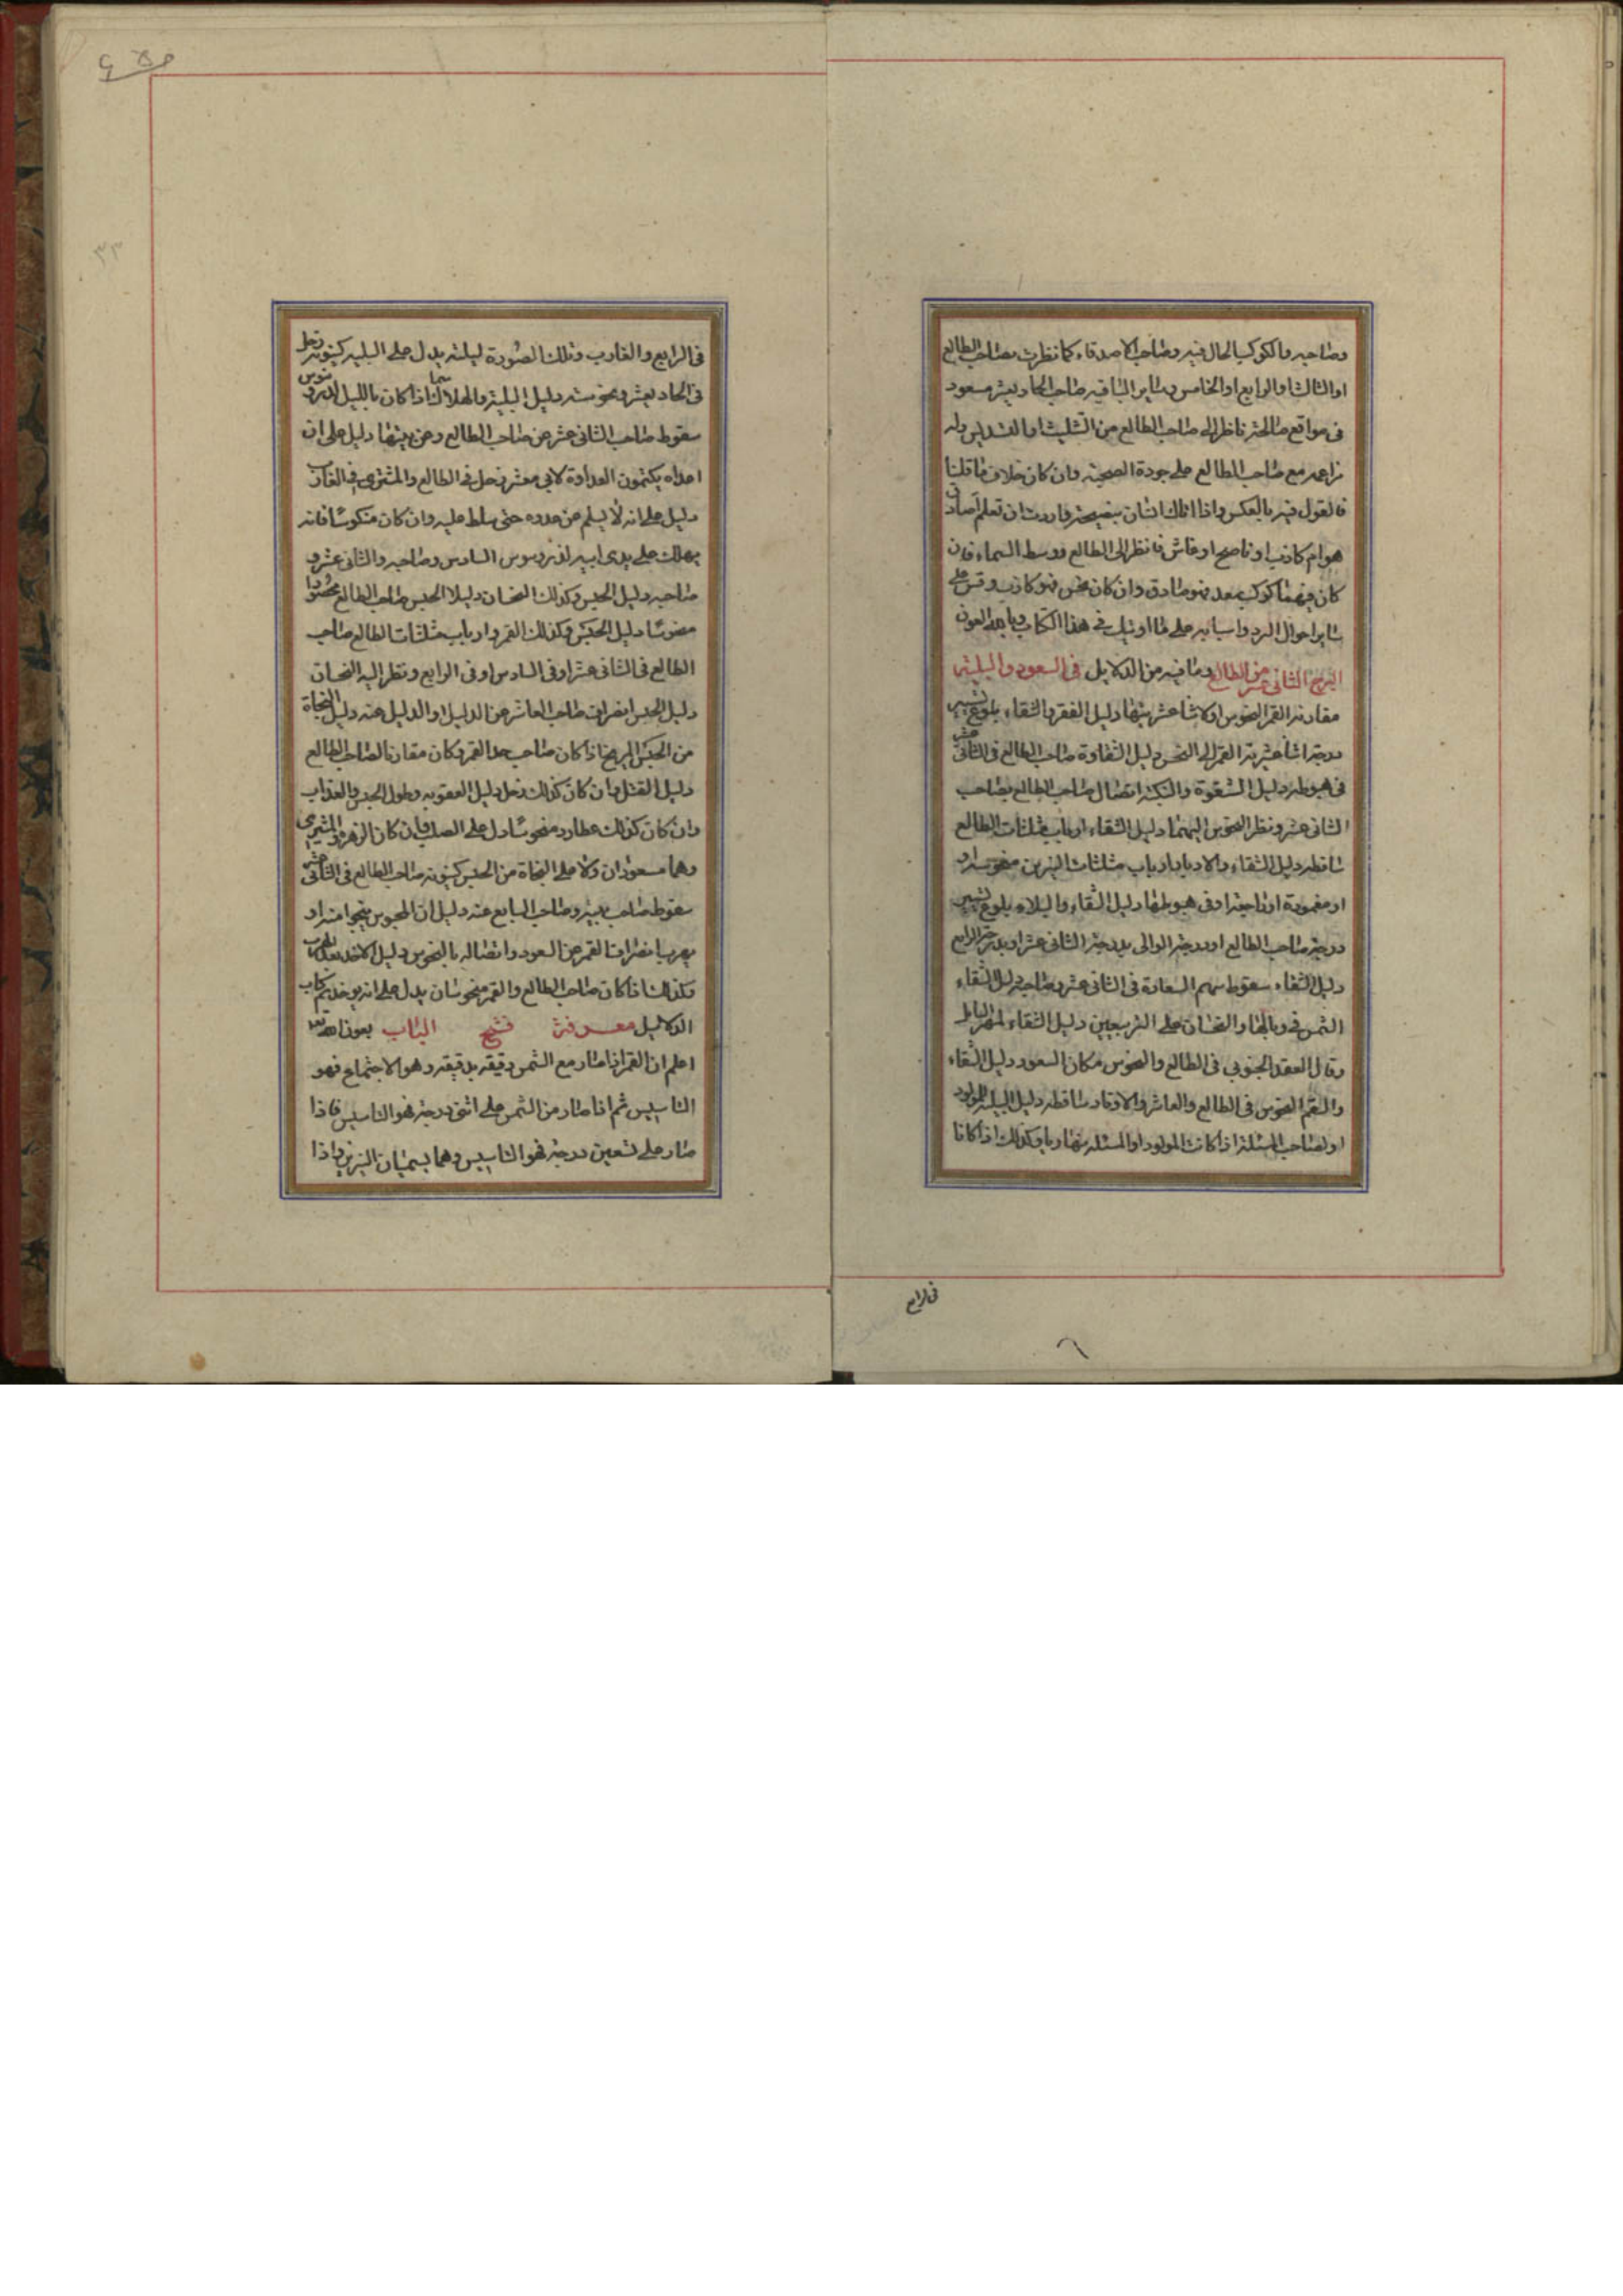 وصاحبه والكوكب الحال فيه وصاحب الاصدقاء كما نظرت بصاحب الطالع
او الثالث او الرابع او الخامس وساير الباقيه صاحب الحادى عشر مسعود
فى مواقع صالحة ناظر الى صاحب الطالع من التثليث او التسديس وله
مزاعمه مع صاحب الطالع على جودة الصحبة وان كان خلاف ما قلنا
فالقول فيه بالعكس واذا اتاك انسان بنصيحة واردت ان تعلم اصادق
هو ام كاذب او ناصح او غاش فانظر الى الطالع ووسط السماء فان
كان فيهما كوكب سعد فهو صادق وان كان نحس فهو كاذب وقس على
ساير احوال الرد واسبابه على ما اوتيك فى هذا الكتاب وبالله العون
البرج الثانى عشر من الطالع وما فيه من الدلايل فى السعود والبلية
مقارنه القمر النحوس او كاشاعشريتها دليل الفقر والشقاء بلوغ تسيير
درجة اثناعشرية القمر الى النحس دليل الشقاوة صاحب الطالع فى الثانى عشر
فى هبوطه دليل الشقوة والنكبة اتصال صاحب الطالع بصاحب
الثانى عشر ونظر النحوس اليهما دليل الشقاء ارباب مثلثات الطالع
ساقطه دليل الشقاء والادبار ارباب مثلثات النيرين منحوسه او
او مغمودة او راجعة او فى هبوطها دليل الشقاء والبلاء بلوغ تسيير
درجة صاحب الطالع او درجة الوالى بدرجة الثانى عشر او بدرجة الرابع
دليل الشقاء سقوط سهم السعادة فى الثانى عشر وصاحبه دليل الشقاء
الشمس فى وبالها والنحسان على التربيعين دليل الشقاء
وقال العقد الجنوبى فى الطالع والنحوس مكان السعود دليل الشقاء
والسقم النحوس فى الطالع والعاشر والاوتاد ساقطه دليل البلية للمولود
او لصاحب المسئلة اذا كانت المولود او المسئله نهاريا وكذلك اذا كانا
فى الرابع
فى الرابع والغارب وتلك الصورة ليلته يدل على البليه كينونة زحل
فى الحادى عشر ونحوسته دليل البلية والهلاك سيما اذا كان بالليل
سقوط صاحب الثانى عشر عن صاحب الطالع وعن بيتها دليل على ان
اعداه يكتمون العداوة لابى معشر زحل فى الطالع والمشترى فى الغارب
دليل على انه لا يسلم من عدوه حتى سلط عليه وان كان منكوسا فانه
يهلك على يدى ابيه السادس وصاحبه والثانى عشر و
صاحبه دليل الحبس وكذلك النحسان دليلا الحبس صاحب الطالع محصورا
منحوسا دليل الحبس وكذلك القمر وارباب مثلثات الطالع صاحب
الطالع فى الثانى عشر او فى السادس او فى الرابع ونظر اليه النحسان
دليل الحبس انصراف صاحب العاشر عن الدليل او الدليل عنه دليل النجاة
من الحبس المريخ اذا كان صاحب حد القمر وكان مقارنا لصاحب الطالع
دليل القتل وان كان كذلك زحل دليل العقوبه وطول الحبس والعذاب
وان كان كذلك عطارد منحوسا دل على الصلب وان كان الزهرة والمشترى
وهما مسعودان دلا على النجاة من الحبس كينونة صاحب الطالع فى الثانى عشر
سقوط صاحب بيته وصاحب السابع عنه دليل ان المحبوس ينجوا منه او
يهرب انصراف القمر عن السعود واتصاله بالنحوس دليل الاخذ بعد الهرب
وكذلك اذا كان صاحب الطالع والقمر منحوسان يدل على انه يوخذ ثم كتاب
الدلاليل معرفة فتح الباب بعون الله تعالى
اعلم ان القمر اذا صار مع الشمس دقيقة بدقيقة وهو الاجتماع فهو
التاسيس ثم اذا صار من الشمس على اثنى درجة فهو التاسيس فاذا
صار على تسعين درجة فهو التاسيس وهما يسميان النيرين واذا